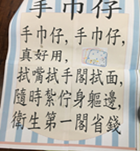 手巾仔
手巾仔，手巾仔，
真好用，
拭嘴拭手閣拭面，
隨時紮佇身軀邊，
衛生第一閣省錢